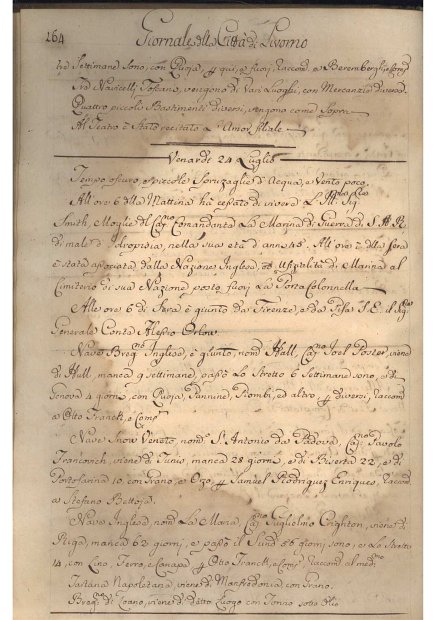 164 Giornale della Città di Livorno
tre Settimane sono, con Puoja, p qui, e fuori, Raccom. a Beremberg
Tre Navicelli Toscani, vengono di vari Luoghi, con Mercanzie diverse
Quattro piccoli Bastimenti diversi, vengono come Sopra
Al Teatro è Stato recitato L'Amor filiale
Venardi 24 Luglio
Tempo oscuro, e piccole Spruzaglie d'Acqua, e Vento poco
All'ore 6 della Mattina hà cessato di vivere La Sig.
Smith, Moglie del Cap.no Comandante La Marina di Guerra di S. A. R.
di male d'Idropisia, nella sua età d'anni 48. All'ore 7 della Sera
è stata associata dalla Nazione Inglese, ed Ufizialità di Marina al
Cimiterio di sua Nazione posto fuori La Porta Colonnella
Alle ore 6 di Sera è giunto da Firenze, e da Pisa S. E. il Sig.
Generale Conte Alesio Orlow.
Nave Brig.no Inglese, è giunto, nom.º Hull, Cap.no Joel Foster, viene
di Hull, manca 9 settimane, passò Lo Stretto 6 Settimane sono, e di
Genova 4 giorni, con Puoja, Pannine, Piombi, ed altro p diversi, Raccom.
a Otto Franck, e Comp.
Nave Snow Veneto, nom.º S. Antonio da Padova, Cap.no Pavolo
Francovich, viene di Tunis, manca 28 giorni, e di Biserta 22, e di
Portofarina 10. con Grano, e Orzo p Samuel Rodriguez Enriques, Raccom.
a Stefano Bettoja.
Nave Inglese, nom.º La Maria Cap.no Guglielmo Crighton, viene di
Riga, manca 62 giorni, e passò il Sund 56 giorni sono, e Lo Stretto
14, con Lino, Ferro, e Canapa p Otto Franck, e Comp. Raccom. al med.mo
Tartana Napoletana, viene di Manfredonia, con Grano.
Brig.no di Loano, viene di detto Luogo con Tonno sotto Olio